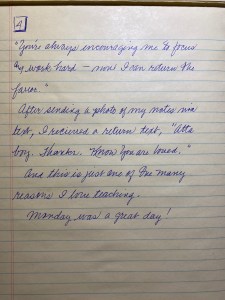 4
"You're always encouraging me to focus
& work hard – now I can return the
favor."
After sending a photo of my notes via
text, I received a return text, "Atta
boy. Thanks. Know you are loved."
And this is just one of the many
reasons I love teaching.
Monday was a great day!